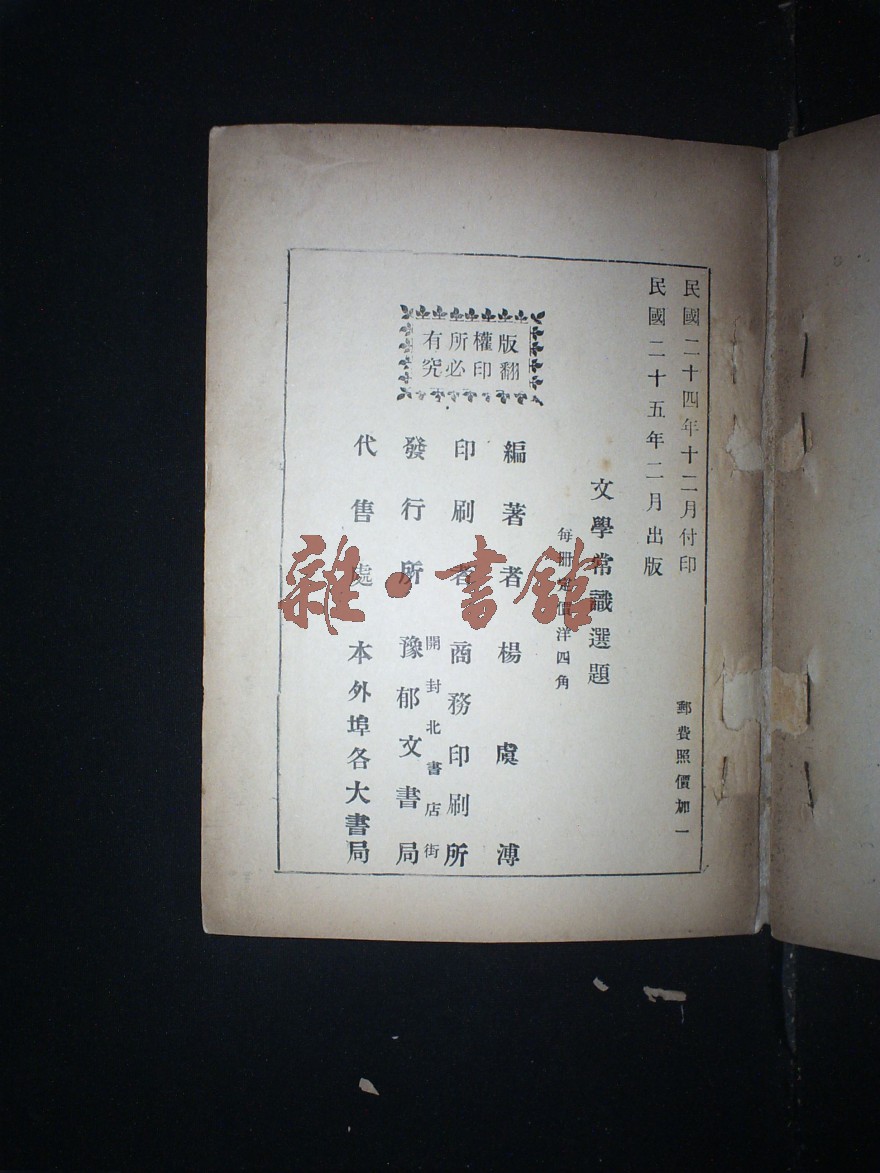 民國二十四年十二月付印
郵費照價加一
民國二十五年二月出版
文學常識選題
每冊定價洋四角
版權所有
翻印必究
編著者楊虞溥
印刷者商務印刷所
發行所開封北書店街豫郁文書局
代售處本外埠各大書局
雜·書館